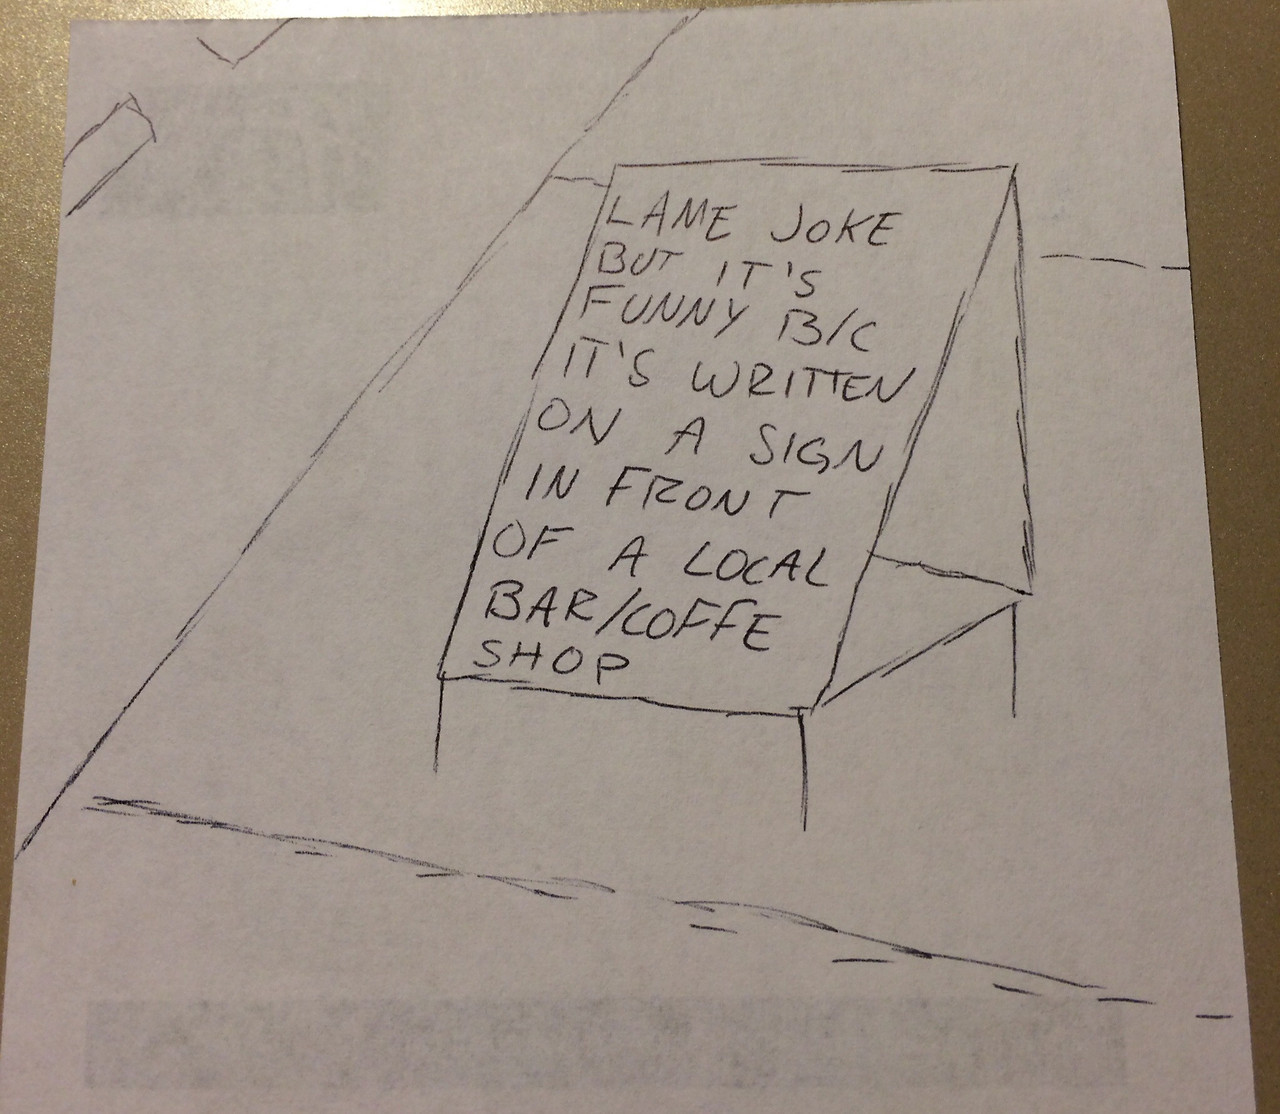 LAME JOKE
BUT IT'S
FUNNY B/C
IT'S WRITTEN
ON A SIGN
IN FRONT
OF A LOCAL
BAR/COFFE
SHOP